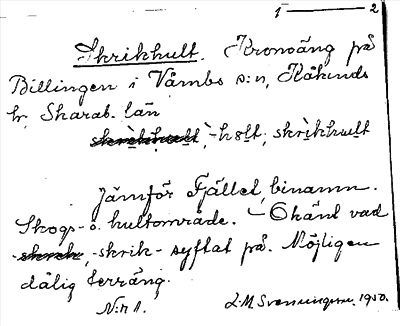 1 ——— 2
Skrikhult. Kronoäng på
Billingen i Våmbs s:n, Kåkinds
hr, Skarab. län
skrìkhu̲lt, -hɵlt, skrìkhu̲lt
Jämför Fjället, binamn.
Skogs- o. hultområde. – Okänt vad
skrik-, -skrik- syftat på. Möjligen
dålig terräng.
N:r 1.
1950.